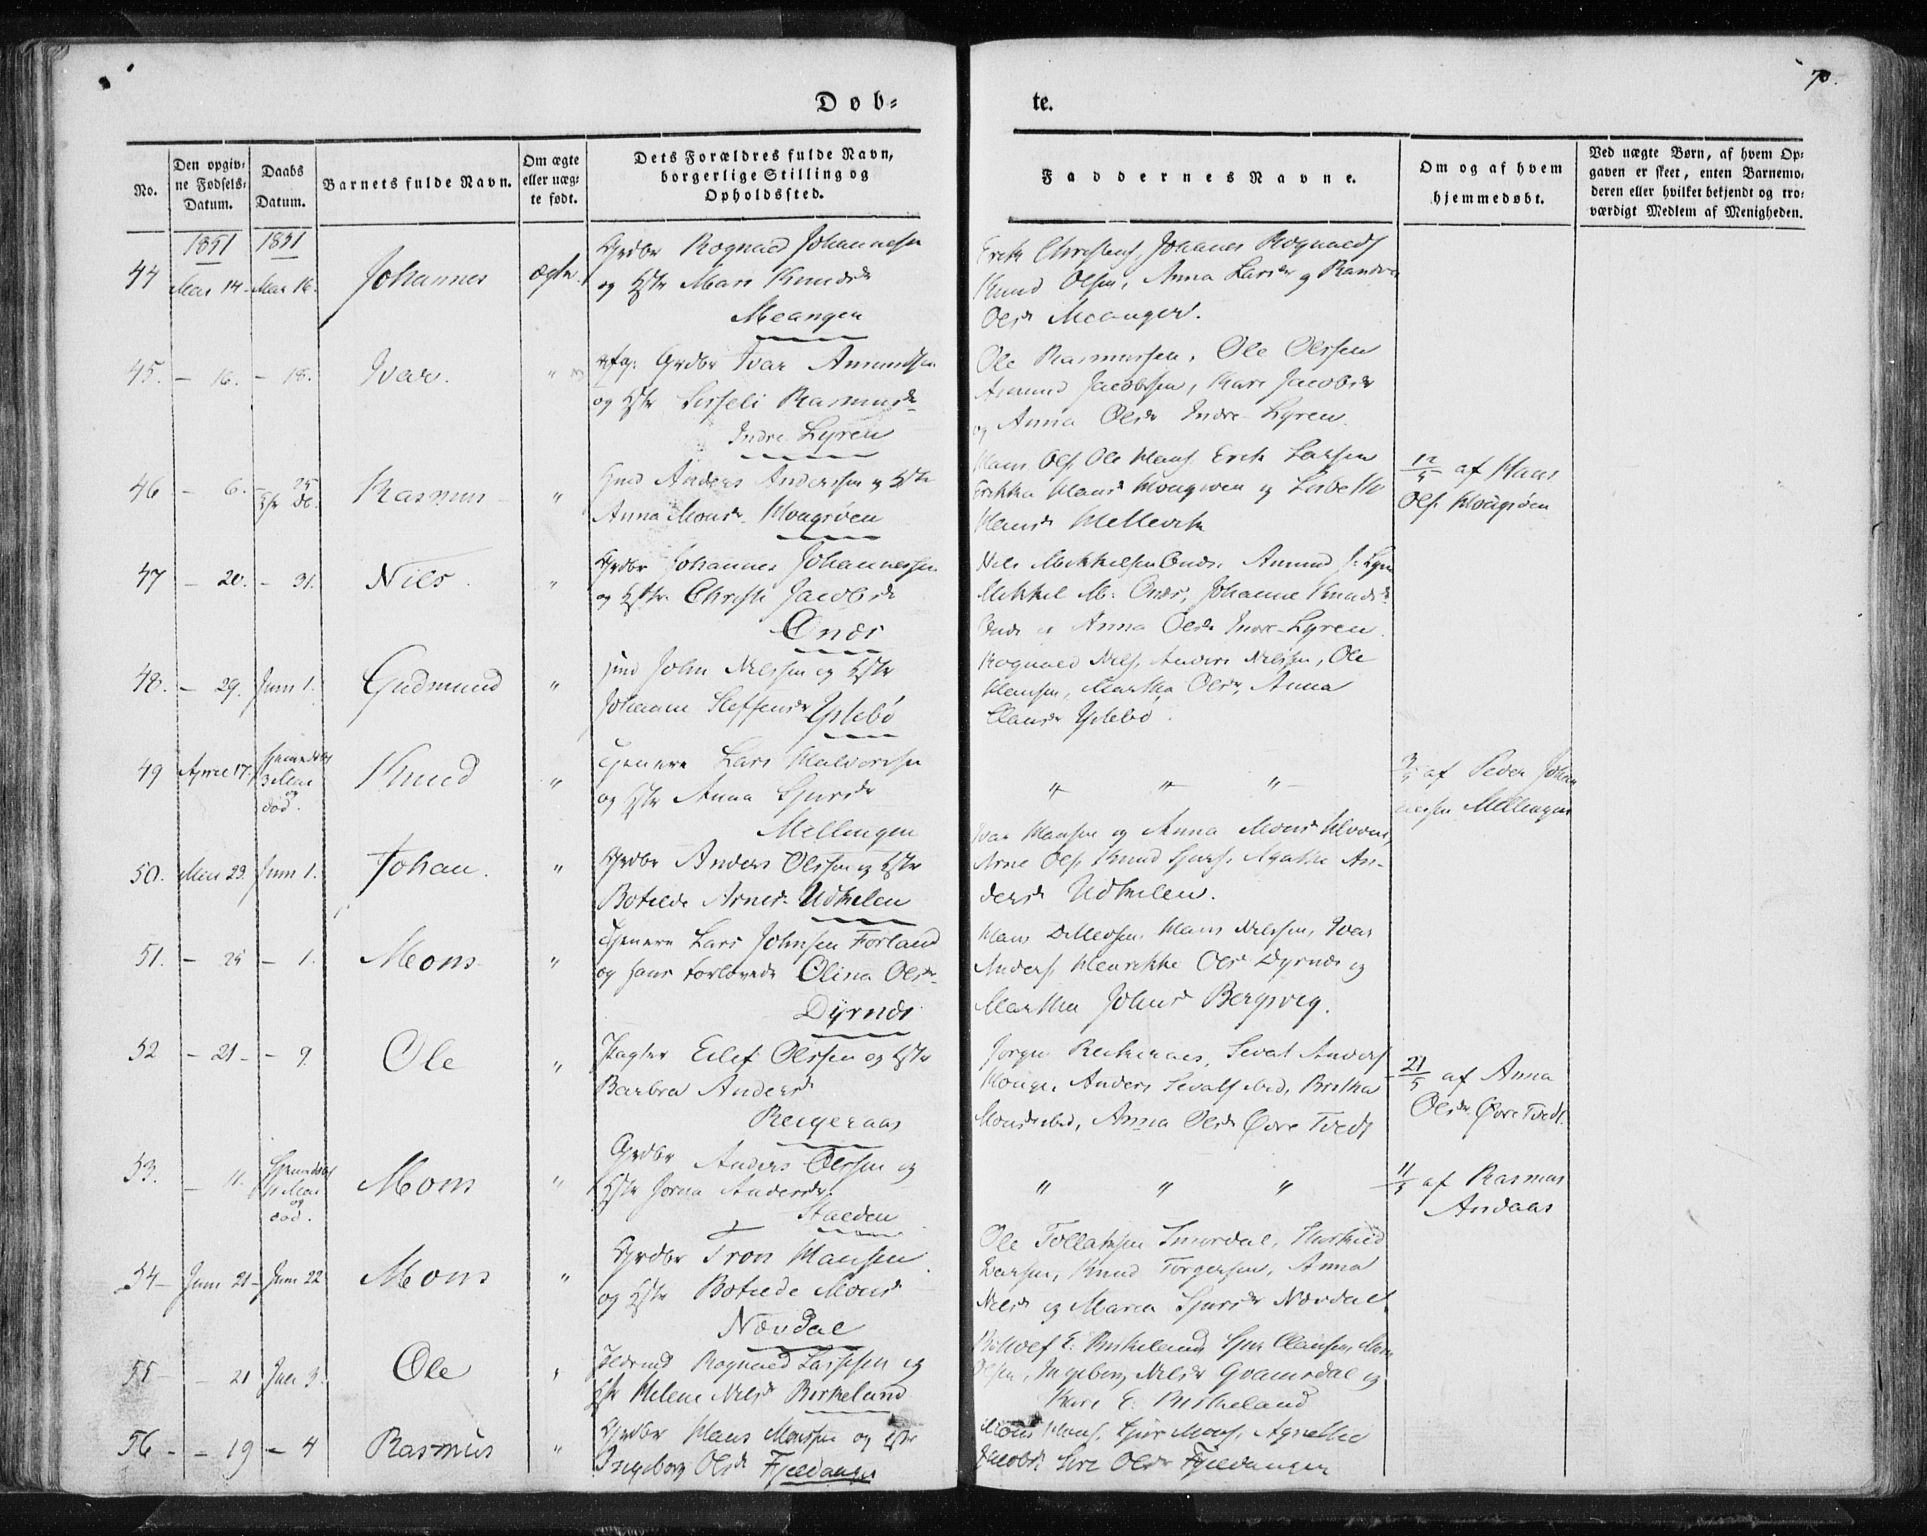 70.
Døb=
te.
No.
Den opgiv=
ne Fødsels=
Datum.
Daabs
Datum.
Barnets fulde Navn.
Om ægte
eller uæg=
te født.
Dets Forældres fulde Navn,
borgerlige Stilling og
Opholdssted.
Faddernes Navne.
Om og af hvem
hjemmedøbt.
Ved uægte Børn, af hvem Op=
gaven er skeet, enten Barnemo=
deren eller hvilket bekjendt og tro=
værdigt Medlem af Menigheden.
1851 1851
44 Mai 14. Mai 16. Johannes ægte. Grdbr Rognald Johannesen
og Hstr Mari Knudsdr
Meangen
Johanes Rognalds
Knud Olsen, Anna Larsdr og
Olsdr Meanger.
45. - 16. - 18. Ivar. " Grdbr Ivar Amundsen
og Hstr Sisseli Rasmusdr
Indre Lyren
Ole Rasmussen, Ole Olssen
Amund Jacobsen, Kari Jacobsdr
og Anna Olsdr Indre-Lyren.
46 - 6. - 25 Rasmus " Hmd Anders Anderssen og Hstr
Anna Monsdr. Hougsøen
Hans Ols. Ole Hans. Erik Larsen
Hansdr Hougsøen og Lisbeth
Hansdr Mellevik
12/5 af Hans
Ols. Hougsøen
47 - 20. - 31. Nils. " Grdbr Johannes Johannessen
og Hstr Christi Jacobsdr
Onæs
Nils Mikkelsen Onæs. Amund J. Lyren
Mikkel M. Onæs, Johanne Knudsdr
Onæs og Anna Olsdr Indre-Lyren.
48. - 29. Juni 1. Gudmund " John Nilssen og Hstr
Johanne Steffensdr Ystebø
Rognald Nels. Anders Nilssen, Ole
Hansen, Martha Olsdr, Anna
Clausdr Ystebø.
49 April 17. Hjemmedøbt
3 Mai
og
død. Knud " Tjenere Lars Halvorsen
og Hstr Anna Sjursdr
Mellingen
" " "
3/5 af Peder Johan
nessen Mellingen
50. Mai 23. Juni 1. Johan. " Grdbr Anders Olssen og Hstr
Botilde Arnesdr Udhelen
Ivar Hansen og Anna Monsdr
Arne Ols. Knud Sjurs. Agatha An-
dersdr Udhelen.
51. - 25 - 1. Mons " Tjenere Lars Johnsen Forland
og hans forlovede Olina Olsdr
Dyrnæs
Hans Nilssen, Ivar
Anders. Henrikke Olsdr Dyrnæs og
Martha Johnsdr Bergsvig.
52 - 21 - - 9. Ole " Pagter Eilef Olssen og Hstr
Barbra Andersdr
Reigeraas
Jørgen Sevat Anders
Houge, Anders Sevatsen ibid, Britha
Monsdr ibid, Anna Olsdr Øvre Tvedt
21/5 af Anna
Olsdr Øvre Tvedt
53. - 11. Hjemmedøbt
11 Mai
og
død. Mons " Grdbr Anders Olssen og
Hstr Jorna Andersdr.
Stalden
" " "
11/5 af Rasmus
Andaas
54 - Juni 21 - Juni 22 Mons " Grdbr Tron Hansen
og Hstr Botilde Monsdr
Nævdal
Ole Tollaksen Smørdal,
Larsen, Knud Torgersen, Anna
Nilsdr og Maria Sjursdr Nævdal.
55 - - 21 Juli 3. Ole " Rognald Larssen og
Hstr Helene Nilsdr Birkeland
E. Birkeland Sjur Clausen
Olsen, Ingeborg Nilsdr Qvamsdal og
Kari E. Birkeland
56 - - 19 - 4 Rasmus " Grdbr Hans Monssen og Hstr
Ingeborg Olsdr Fjeldanger
Mons Hans. Sjur Mons. Agnethe
Jacobsdr Siri Olsdr Fjeldanger